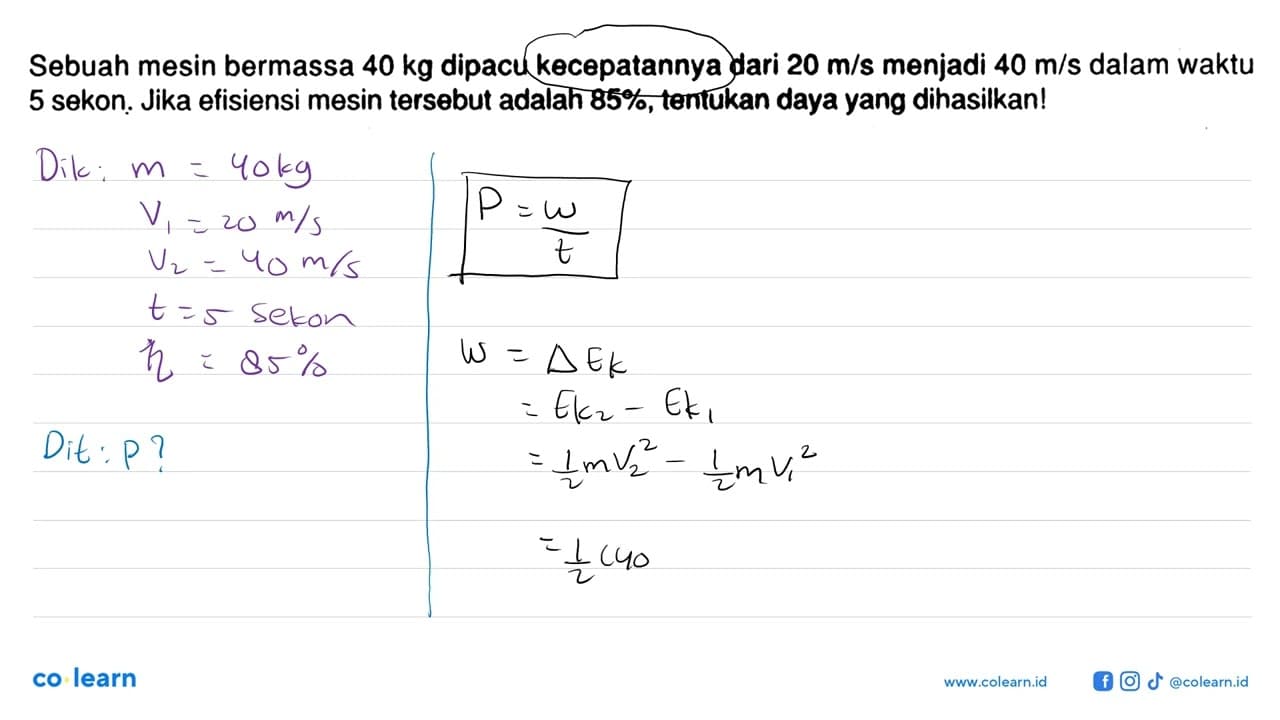 Sebuah mesin bermassa 40 kg dipacu kecepatannya dari 20 m/s menjadi 40 m/s dalam waktu
5 sekon. Jika efisiensi mesin tersebut adalah 85%, tentukan daya yang dihasilkan!
Dik: m = 40kg
V₁ = 20 m/s
V₂ = 40 m/s
t = 5 sekon
η = 85%
Dit: P?
P = w/t
W = ΔEk
= Ek₂ - Ek₁
= 1/2 mV₂² - 1/2 mV₁²
= 1/2 (40
co learn
www.colearn.id
@colearn.id